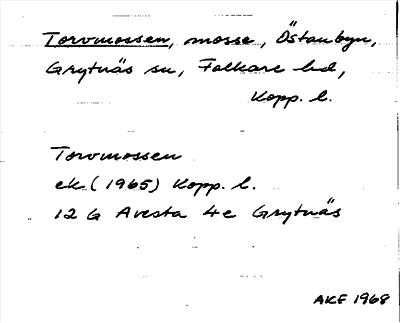 Torvmossen, mosse, Östanbyn,
Grytnäs sn, Folkare hd,
Kopp. l.
Torvmossen
ek (1965) Kopp. l.
12 G Avesta 4e Grytnäs
AKF 1968